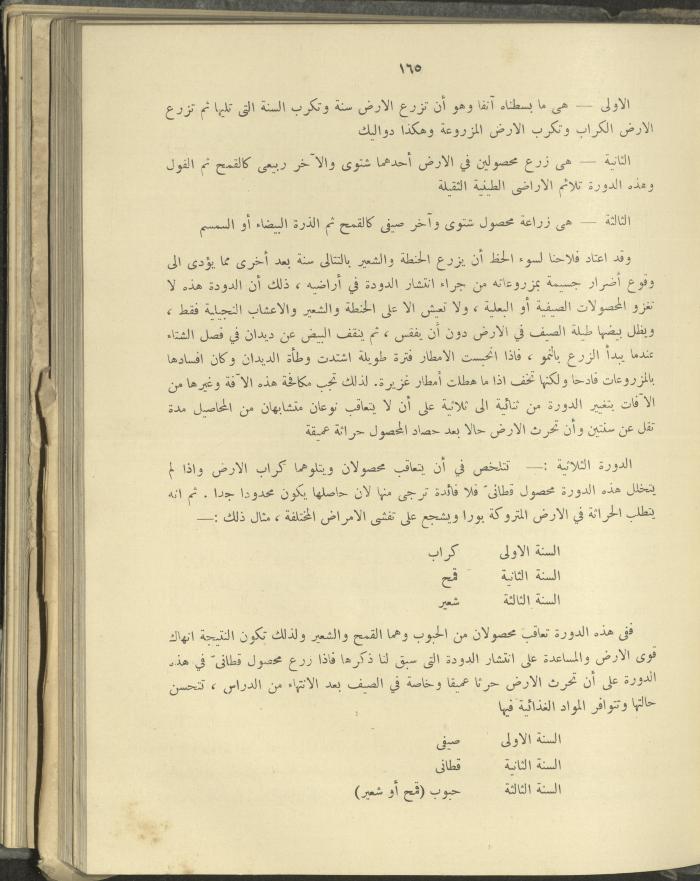 ١٦٥
الاولى — هى ما بسطناه آنفا وهو أن تزرع الارض سنة وتكرب السنة التى تليها ثم تزرع
الارض الكراب وتكرب الارض المزروعة وهكذا دواليك
الثانية — هى زرع محصولين في الارض أحدهما شتوى والآخر ربيعى كالقمح ثم الفول
وهذه الدورة تلائم الاراضى الطينية الثقيلة
الثالثة — هى زراعة محصول شتوى وآخر صيفى كالقمح ثم الذرة البيضاء أو السمسم
وقد اعتاد فلاحنا لسوء الحظ أن يزرع الحنطة والشعير بالتتالى سنة بعد أخرى مما يؤدى الى
وقوع أضرار جسيمة بمزروعاته من جراء انتشار الدودة في أراضيه ، ذلك أن الدودة هذه لا
تغزو المحصولات الصيفية أو البعلية ، ولا تعيش الا على الحنطة والشعير والاعشاب النجيلية فقط ،
ويظل بيضها طيلة الصيف في الارض دون أن يفقس ، ثم ينقف البيض عن ديدان في فصل الشتاء
عندما يبدأ الزرع بالنمو ، فاذا انحبست الامطار فترة طويلة اشتدت وطأة الديدان وكان افسادها
بالمزروعات فادحا ولكنها تخف اذا ما هطلت أمطار غزيرة. لذلك تجب مكافحة هذه الآفة وغيرها من
الآفات بتغيير الدورة من ثنائية الى ثلاثية على أن لا يتعاقب نوعان متشابهان من المحاصيل مدة
تقل عن سنتين وأن تحرث الارض حالا بعد حصاد المحصول حراثة عميقة
الدورة الثلاثية :— تتلخص في أن يتعاقب محصولان ويتلوهما كراب الارض واذا لم
يتخلل هذه الدورة محصول قطانىّ فلا فائدة ترجى منها لان حاصلها يكون محدودا جدا . ثم انه
يتطلب الحراثة في الارض المتروكة بورا ويشجع على تفشى الامراض المختلفة ، مثال ذلك :—
السنة الاولى كراب
السنة الثانية قمح
السنة الثالثة شعير
ففى هذه الدورة تعاقب محصولان من الحبوب وهما القمح والشعير ولذلك تكون النتيجة انهاك
قوى الارض والمساعدة على انتشار الدودة التى سبق لنا ذكرها فاذا زرع محصول قطانىّ في هذه
الدورة على أن تحرث الارض حرثا عميقا وخاصة في الصيف بعد الانتهاء من الدراس ، تتحسن
حالتها وتتوافر المواد الغذائية فيها
السنة الاولى صيفى
السنة الثانية قطانى
السنة الثالثة حبوب (قمح أو شعير)